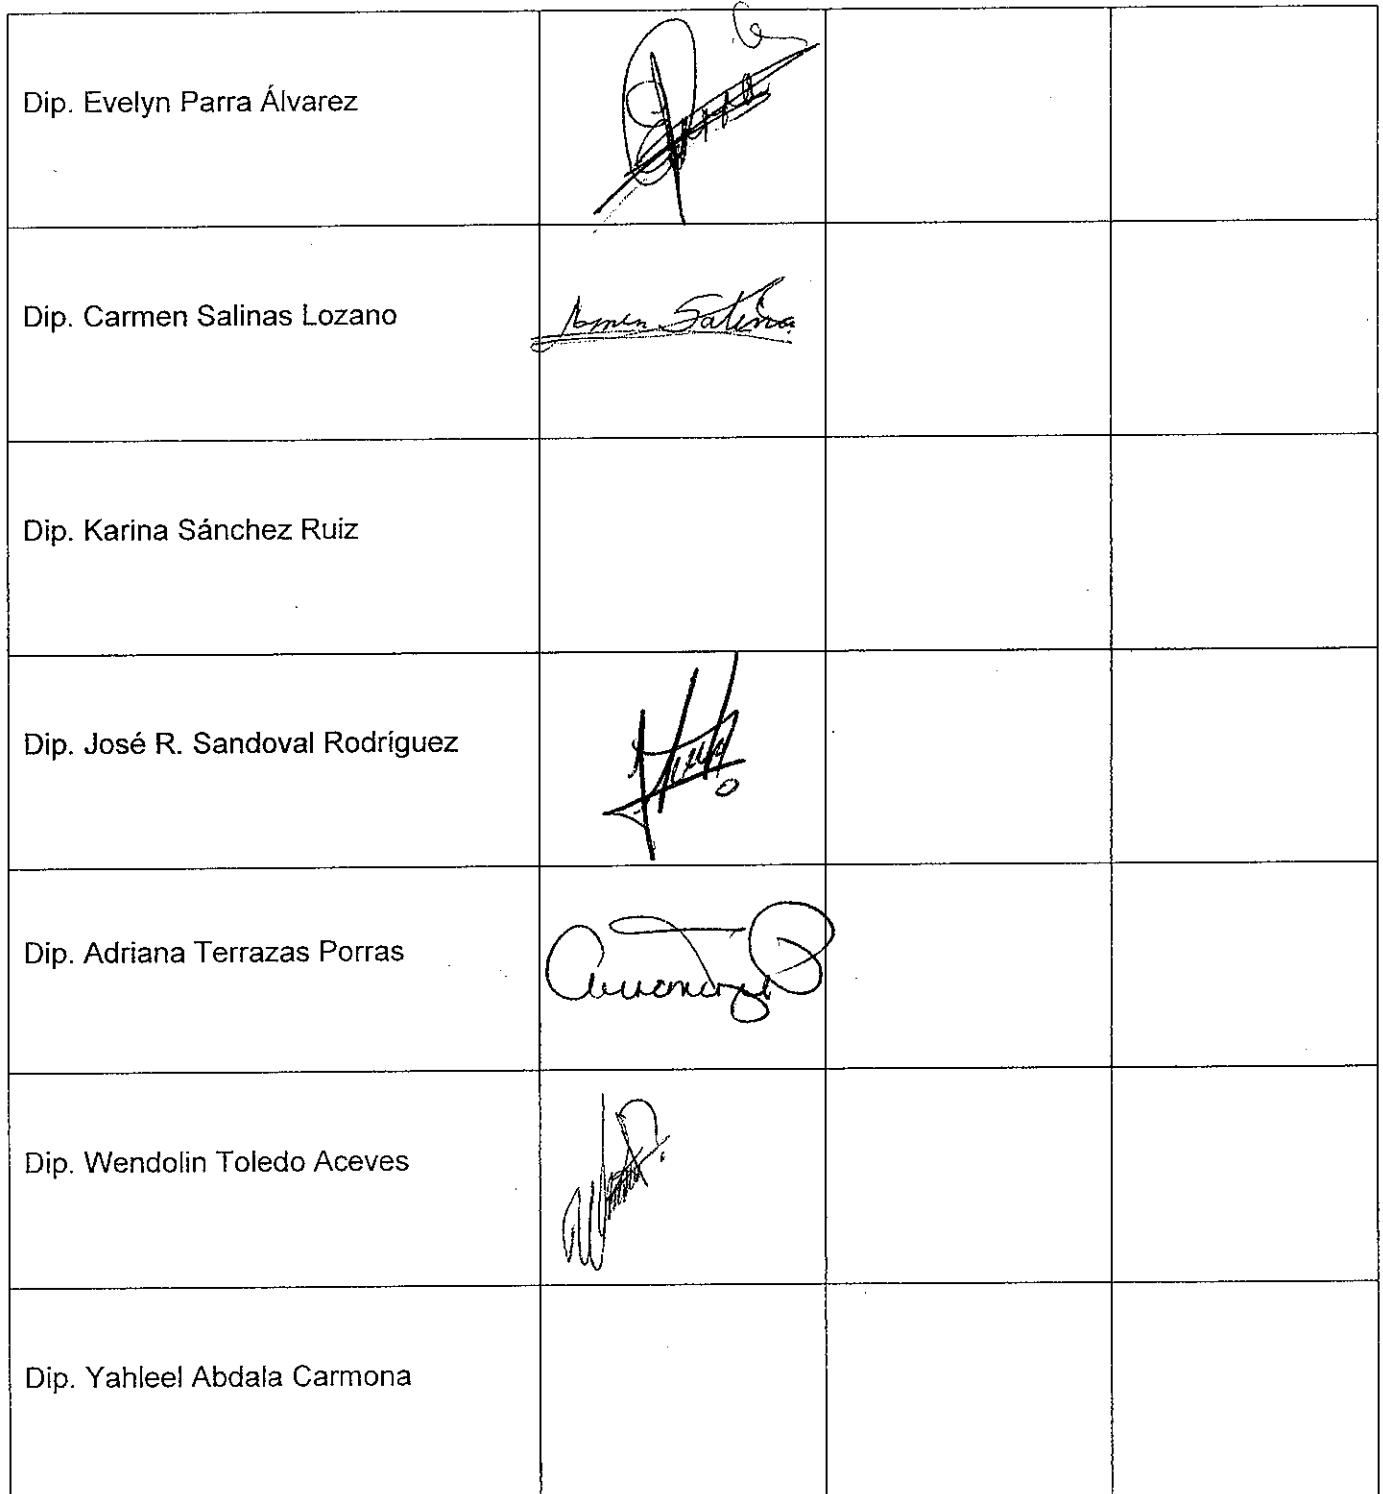 Dip. Evelyn Parra Álvarez
Dip. Carmen Salinas Lozano
Carmen Salinas
Dip. Karina Sánchez Ruiz
Dip. José R. Sandoval Rodríguez
Dip. Adriana Terrazas Porras
Dip. Wendolin Toledo Aceves
Dip. Yahleel Abdala Carmona